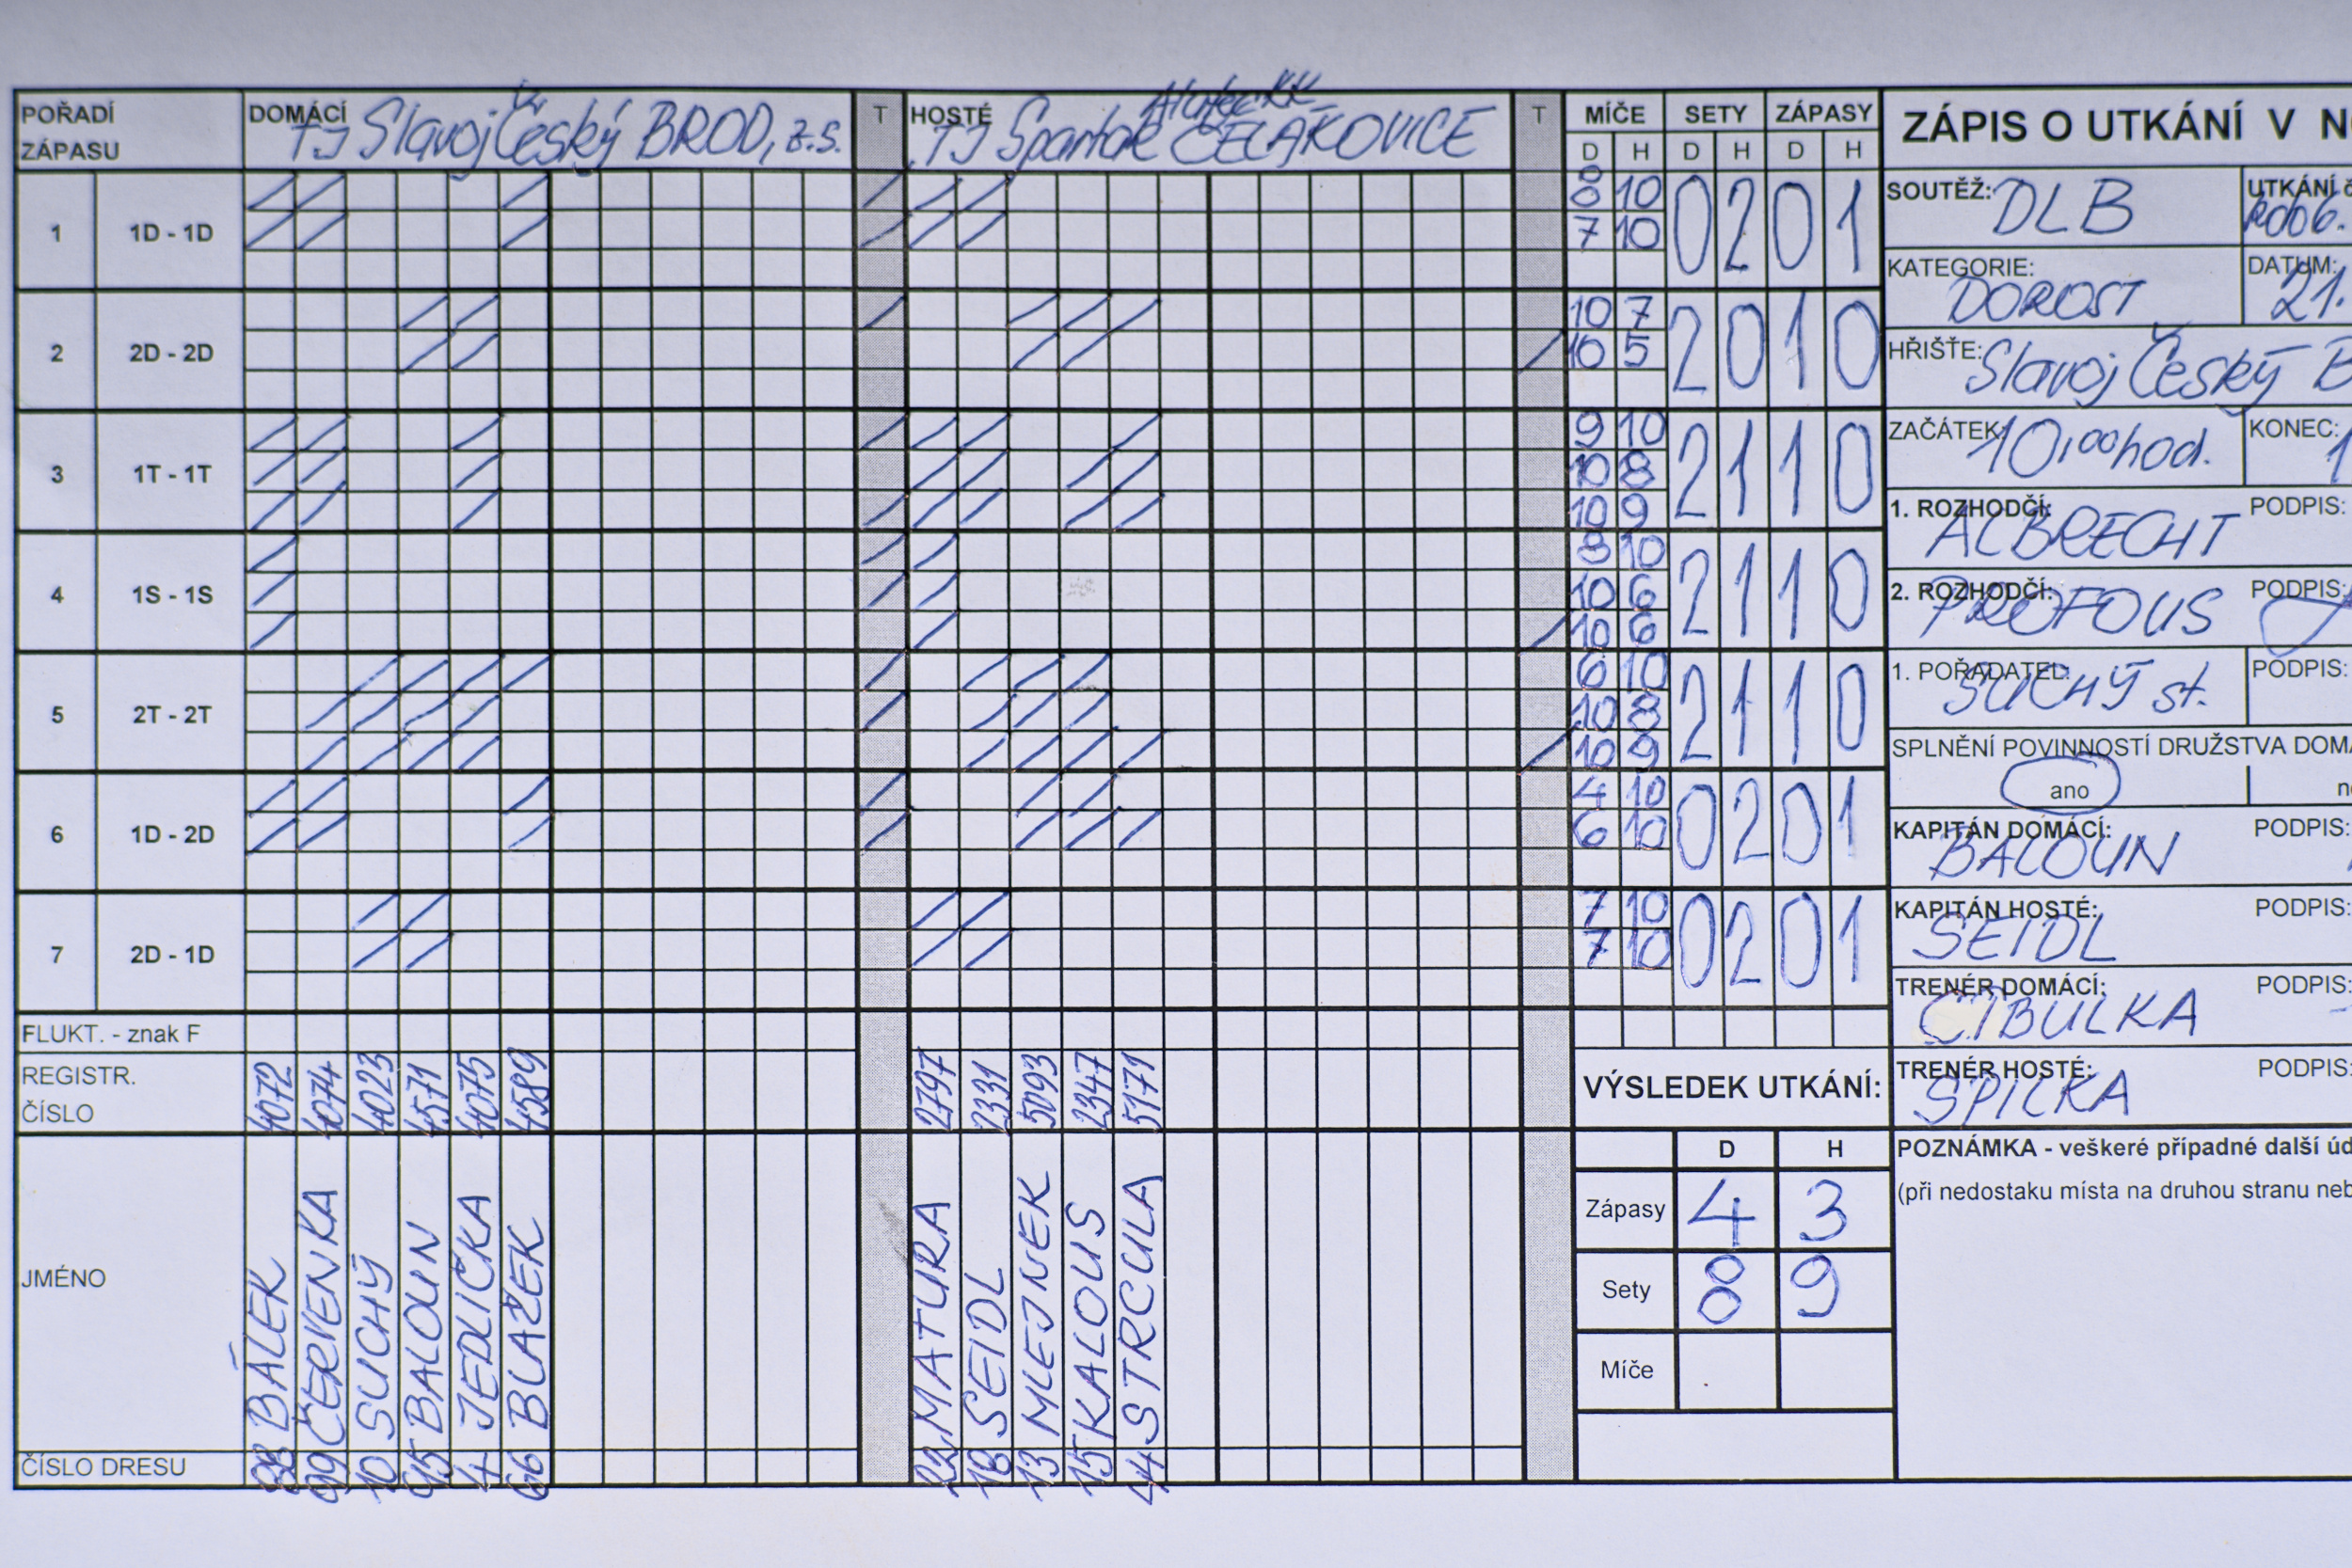 POŘADÍ ZÁPASU
DOMÁCÍ TJ Slavoj Český BROD, z.s.
T
HOSTÉ TJ Spartak ČELÁKOVICE
T
MÍČE SETY ZÁPASY
D H D H D H
1 1D - 1D
8 10
7 10
0 2 0 1
2 2D - 2D
10 7
10 5
2 0 1 0
3 1T - 1T
9 10
10 8
10 9
2 1 1 0
4 1S - 1S
8 10
10 6
10 6
2 1 1 0
5 2T - 2T
6 10
10 8
10 9
2 1 1 0
6 1D - 2D
4 10
6 10
0 2 0 1
7 2D - 1D
7 10
7 10
0 2 0 1
FLUKT. - znak F
REGISTR. ČÍSLO
4072 4074 4023 4571 4075 4589
2797 2331 5093 2347 5171
JMÉNO
BÁLEK
ČERVENKA
SUCHÝ
BALOUN
JEDLIČKA
BLAŽEK
MATURA
SEIDL
MLEJNEK
KALOUS
STRCULA
ČÍSLO DRESU
99 10 95 4 66
22 18 13 15 44
VÝSLEDEK UTKÁNÍ:
D H
Zápasy 4 3
Sety 8 9
Míče
ZÁPIS O UTKÁNÍ V
SOUTĚŽ: DLB
UTKÁNÍ
KATEGORIE: DOROST
DATUM: 21.
HŘIŠTĚ: Slavoj Český B
ZAČÁTEK: 10,00 hod.
KONEC: 1
1. ROZHODČÍ: ALBRECHT
PODPIS:
2. ROZHODČÍ: PROFOUS
PODPIS:
1. POŘADATEL: SUCHÝ st.
PODPIS:
SPLNĚNÍ POVINNOSTÍ DRUŽSTVA DOMÁ
ano
KAPITÁN DOMÁCÍ: BALOUN
PODPIS:
KAPITÁN HOSTÉ: SEIDL
PODPIS:
TRENÉR DOMÁCÍ: CIBULKA
PODPIS:
TRENÉR HOSTÉ: SPILKA
PODPIS:
POZNÁMKA - veškeré případné další úd
(při nedostaku místa na druhou stranu neb